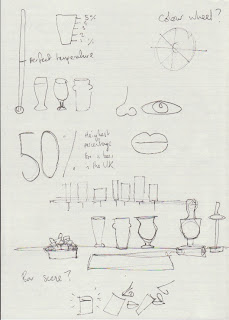 5%
1%
Colour wheel?
Perfect temperature
50%
Highest
percentage
for a beer
in the UK
Bar scene?